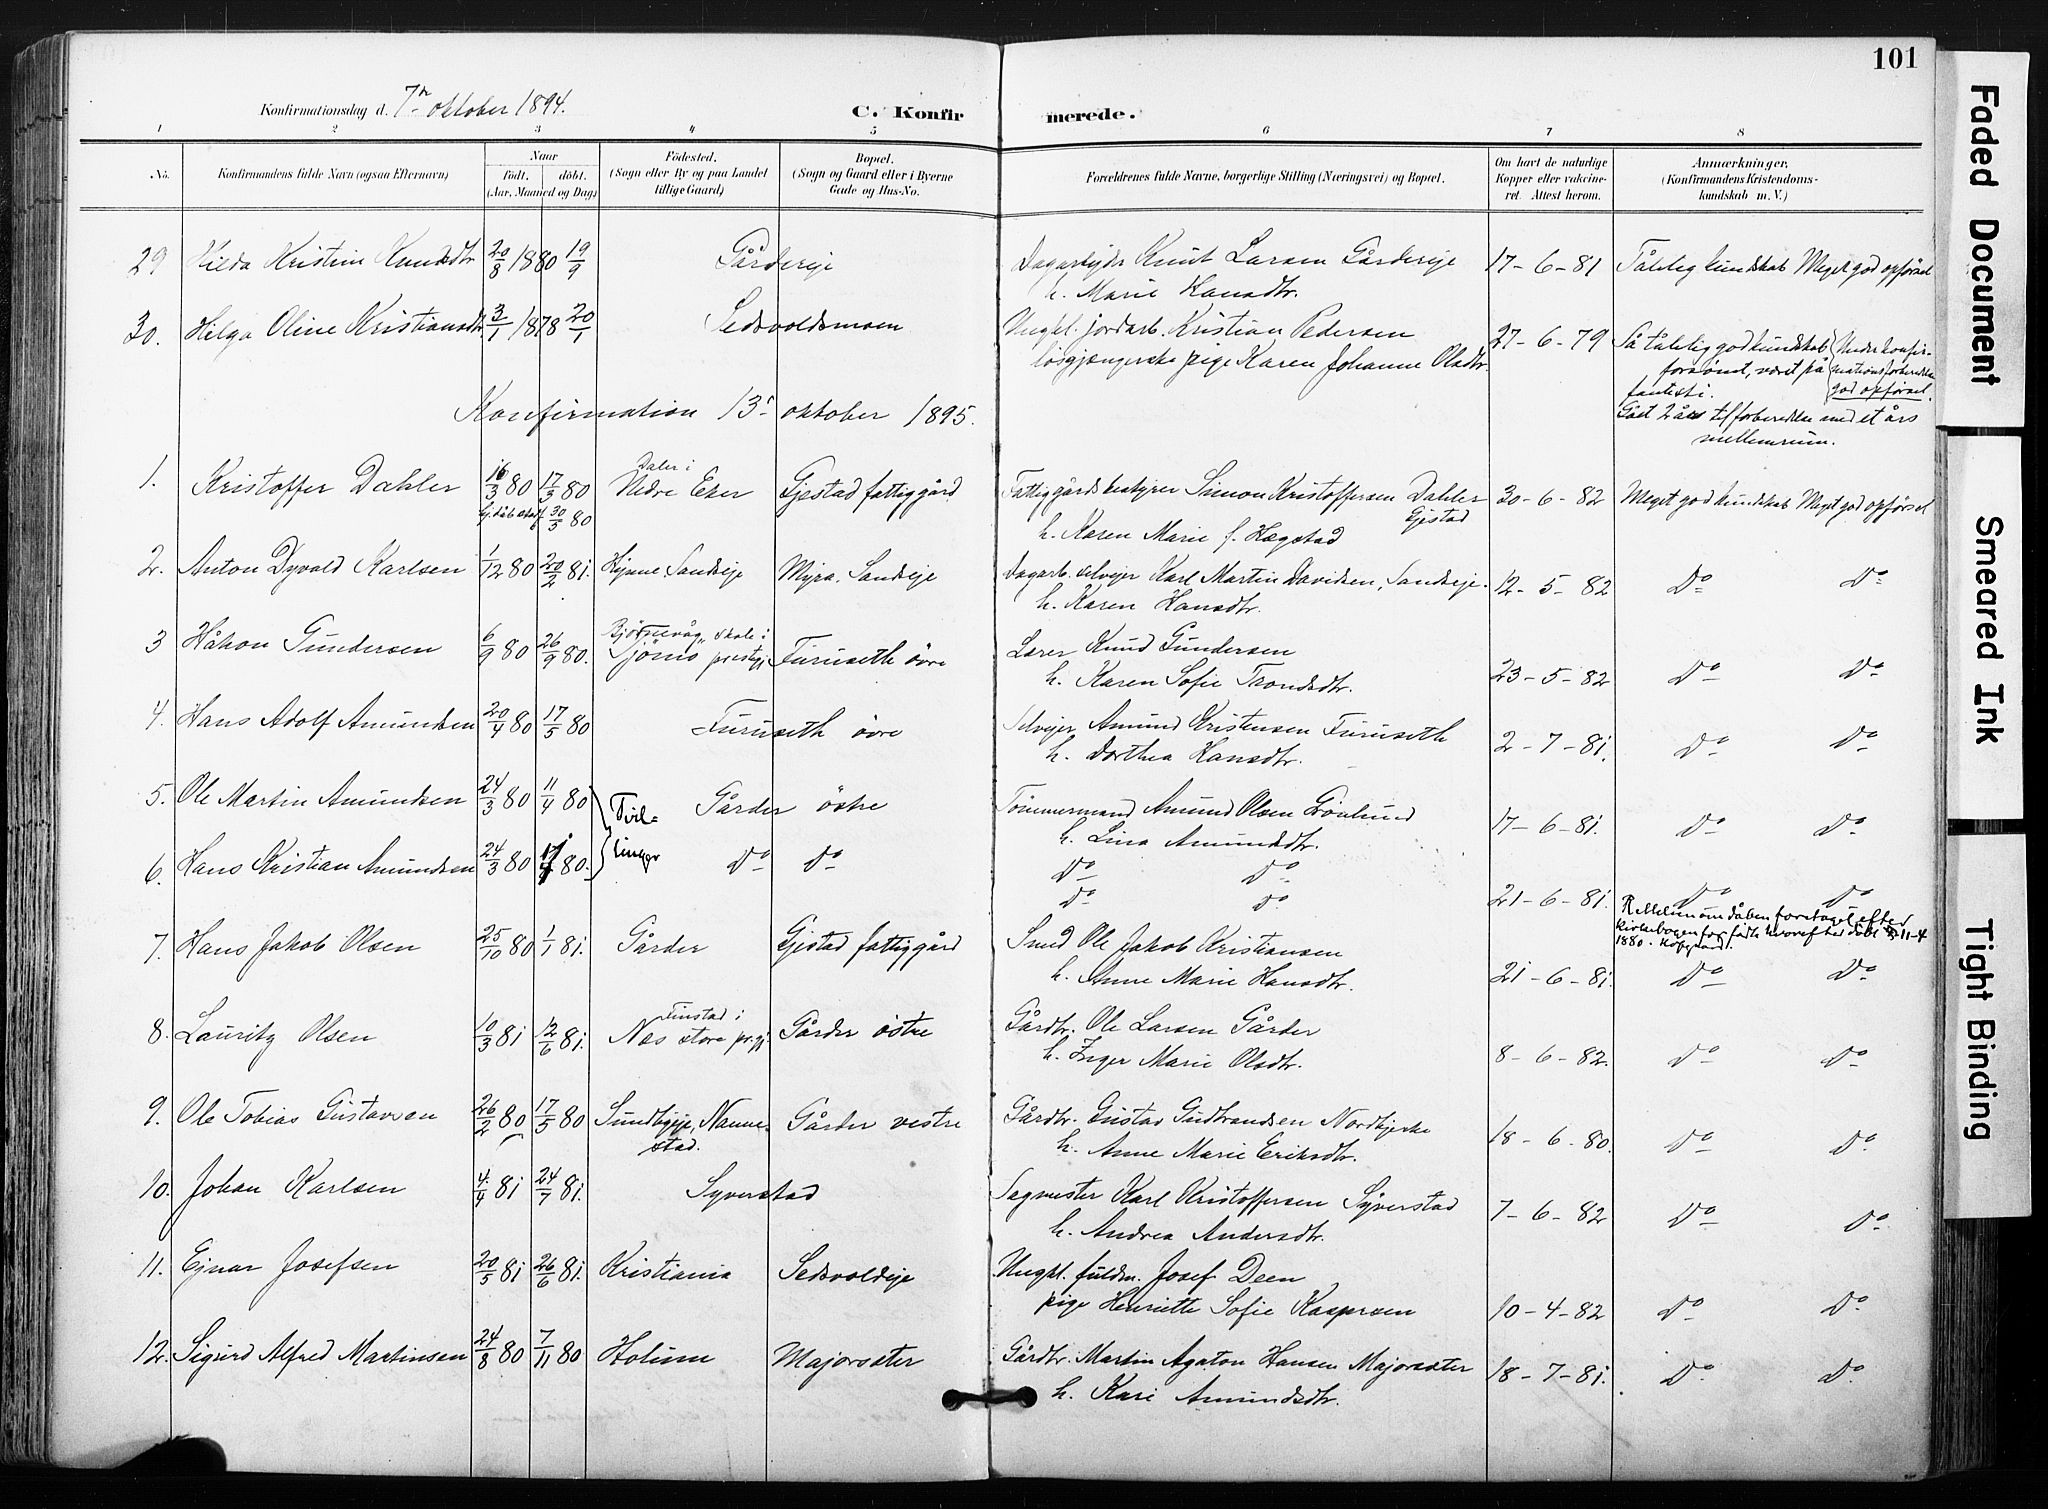 101
Konfirmationsdag d. 7de oktober 1894.
C. Konfirmerede.
1 2 3 4 5 6 7 8
No. Konfirmandens fulde Navn (ogsaa Efternavn) Naar født. døbt. (Aar, Maaned og Dag) Fødested. (Sogn eller By og paa Landet tillige Gaard) Bopæl. (Sogn og Gaard eller i Byerne Gade og Hus-No. Forældrenes fulde Navne, borgerlige Stilling (Næringsvei) og Bopæl. Om havt de naturlige Kopper eller vakcineret. Attest herom. Anmærkninger, (Konfirmandens Kristendomskundskab m. V.)
29 Hilda Kristine Knudsdtr. 20/8 1880 19/9 Gårdereje Dagarbejdr Knut Larsen Gårdereje 17-6-81 Tålelig kundskab Meget god opførsel
h. Marie Hansdtr.
30. Helga Oline Kristiansdtr. 3/1 1878 20/1 Sedsvoldsmoen Ungkl. jordarb. Kristian Pedersen 27-6-79 Så tålelig god kundskab Under konfir-
løsgjængerske pige Karen Johanne Olsdtr. forsømt, været på mationsforberedelse
fantesti. god opførsel.
Konfirmation 13de oktober 1895. Gået 2 år til forberedelse med et års
mellemrum.
1. Kristoffer Dahler 16/3 80 17/3 80 Daler i Nedre Eker Gjestad fattiggård Fattiggårdsbestyrer Simon Kristoffersen Dahler Gjestad 30-6-82 Meget god kundskab Meget god opførsel
30/5 80 h. Karen Marie f. Hægstad
2. Anton Dyvald Karlsen 1/12 80 20/2 81. Hynne, Sandseje Myra, Sandseje Dagarb. selvejer Karl Martin Davidsen, Sandseje. 12-5-82 Do Do
h. Karen Hansdtr.
3 Håkon Gundersen 6/9 80 26/9 80. Bjørnevåg skole i Tjømø prestgj. Furuseth øvre Lærer Knud Gundersen
h. Karen Sofie Trondsdtr. 23-5-82 Do Do
4. Hans Adolf Amundsen 20/4 80 17/5 80 Furuseth øvre Selvejer Amund Kristensen Furuseth
h. Dorthea Hansdtr. 2-7-81. Do Do
5. Ole Martin Amundsen 24/3 80 11/4 80 Tvil- Gårder østre Tømmermand Amund Olsen Grønlund
h. Lina Amundsdtr. 17-6-81. Do Do
6. Hans Kristian Amundsen 24/3 80 11/4 80. linger Do Do Do Do
Do Do 21-6-81. Do Do
kirkebogen
1880.
7. Hans Jakob Olsen 25/10 80 1/1 81. Gårder Gjestad fattiggård Smed Ole Jakob Kristiansen
h. Anne Marie Hansdtr. 21-6-81. Do Do
8. Lauritz Olsen 10/3 81 12/6 81. Finstad i Næs store prgj. Gårder østre Gårdbr. Ole Larsen Gårder
h. Inger Marie Olsdtr. 8-6-82. Do Do
9. Ole Tobias Gustavsen 26/2 80 17/5 80 Sundbyeje, Nanne-
stad. Gårder vestre Gårdbr. Gustav Gudbrandsen Nordbjerke
h. Anne Marie Eriksdtr. 18-6-80. Do Do
10. Johan Karlsen 4/4 81 24/7 81. Syverstad Sagmester Karl Kristoffersen Syverstad
h. Andrea Andersdtr. 7-6-82. Do Do
11. Ejnar Josefsen 20/5 81 26/6 81. Kristiania Sedsvoldeje Ungkl. fuldm. Josef Deen
pige Henriette Sofie Kaspersen 10-4-82 Do Do
12. Sigurd Alfred Martinsen 24/8 80 7/11 80 Holum Majorsæter Gårdbr. Martin Agaton Hansen Majorsæter
h. Kari Amundsdtr. 18-7-81. Do Do
Faded Document
Smeared Ink
Tight Binding